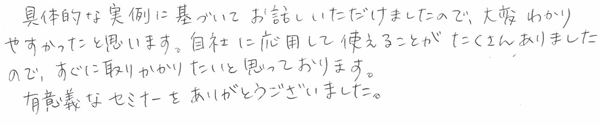 具体的な実例に基づいてお話しいただけましたので、大変わかり
やすかったと思います。自社に応用して使えることがたくさんありました
ので、すぐに取りかかりたいと思っております。
有意義なセミナーをありがとうございました。